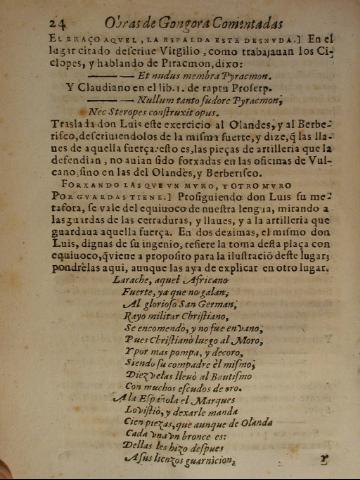 24 Obras de Gongora Comentadas
EL BRAÇO AQUEL, LA ESPALDA ESTA DESNVDA.] En el
lugar citado descriue Virgilio, como trabajauan los Ci-
clopes, y hablando de Piracmon, dixo:
Et nudus membra Pyracmon.
Y Claudiano en el lib. 1. de raptu Proserp.
Nullum tanto sudore Pyracmon,
Nec Steropes construxit opus.
Traslada don Luis este exercicio al Olandes, y al Berbe-
risco, descriuiendolos de la misma suerte, y dize, q̃ las lla-
ues de aquella fuerça: esto es, las pieças de artilleria que la
defendian, no auian sido forxadas en las oficinas de Vul-
cano, sino en las del Olandès, y Berberisco.
FORXANDO LAS QVE VN MVRO, Y OTRO MVRO
POR GVARDAS TIENE.] Prosiguiendo don Luis su me-
tafora, se vale del equiuoco de nuestra lengua, mirando a
las guardas de las cerraduras, y llaues, y a la artilleria que
guardaua aquella fuerça. En dos dezimas, el mismo don
Luis, dignas de su ingenio, refiere la toma desta plaça con
equiuoco, q̃ viene a proposito para la ilustraciõ deste lugar;
pondrèlas aqui, aunque las aya de explicar en otro lugar.
Larache, aquel Africano
Fuerte, ya que no galan,
Al glorioso San German,
Rayo militar Christiano,
Se encomendo, y no fue en vano,
Pues Christianò luego al Moro,
Y por mas pompa, y decoro,
Siendo su compadre èl mismo,
Diez velas lleuò al Bautismo
Con muchos escudos de oro.
A la Española el Marques
Lo vistiò, y dexarle manda
Cien piezas, que aunque de Olanda
Cada vna vn bronce es:
Dellas les hizo despues
A sus lienzos guarnicion,